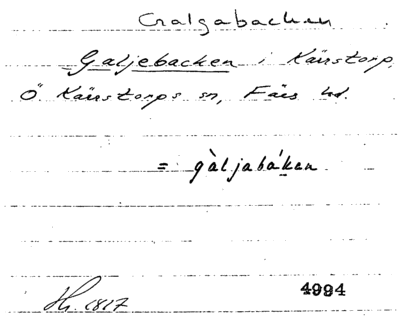 Galgabacken
Galjebacken i Kärrstorp,
Ö. Kärrstorps sn, Färs hd.
= gàljabá'ken
Hg. 1817
4994